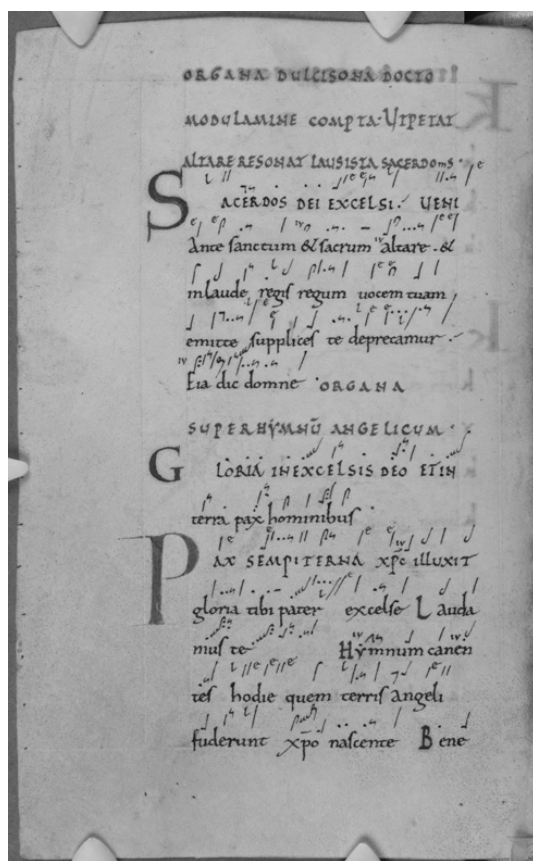 ORGANA DULCISONA DOCTO
MODULAMINE COMPTA· UT PETAT
ALTARE RESONAT LAUS ISTA SACERDOTIS·
SACERDOS DEI EXCELSI· UENI
Ante sanctum & sacrum altare· &
inlaude regis regum uocem tuam
emitte supplices te deprecamur·
Eia dic domne ORGANA
SUPER HYMNŪ ANGELICUM·
GLORIA IN EXCELSIS DEO ET IN
terra pax hominibus
PAX SEMPITERNA xp̄c ILLUXIT
gloria tibi pater excelse Lauda
mus te Hẏmnum canen
tes hodie quem terris angeli
fuderunt xp̄o nascente Bene